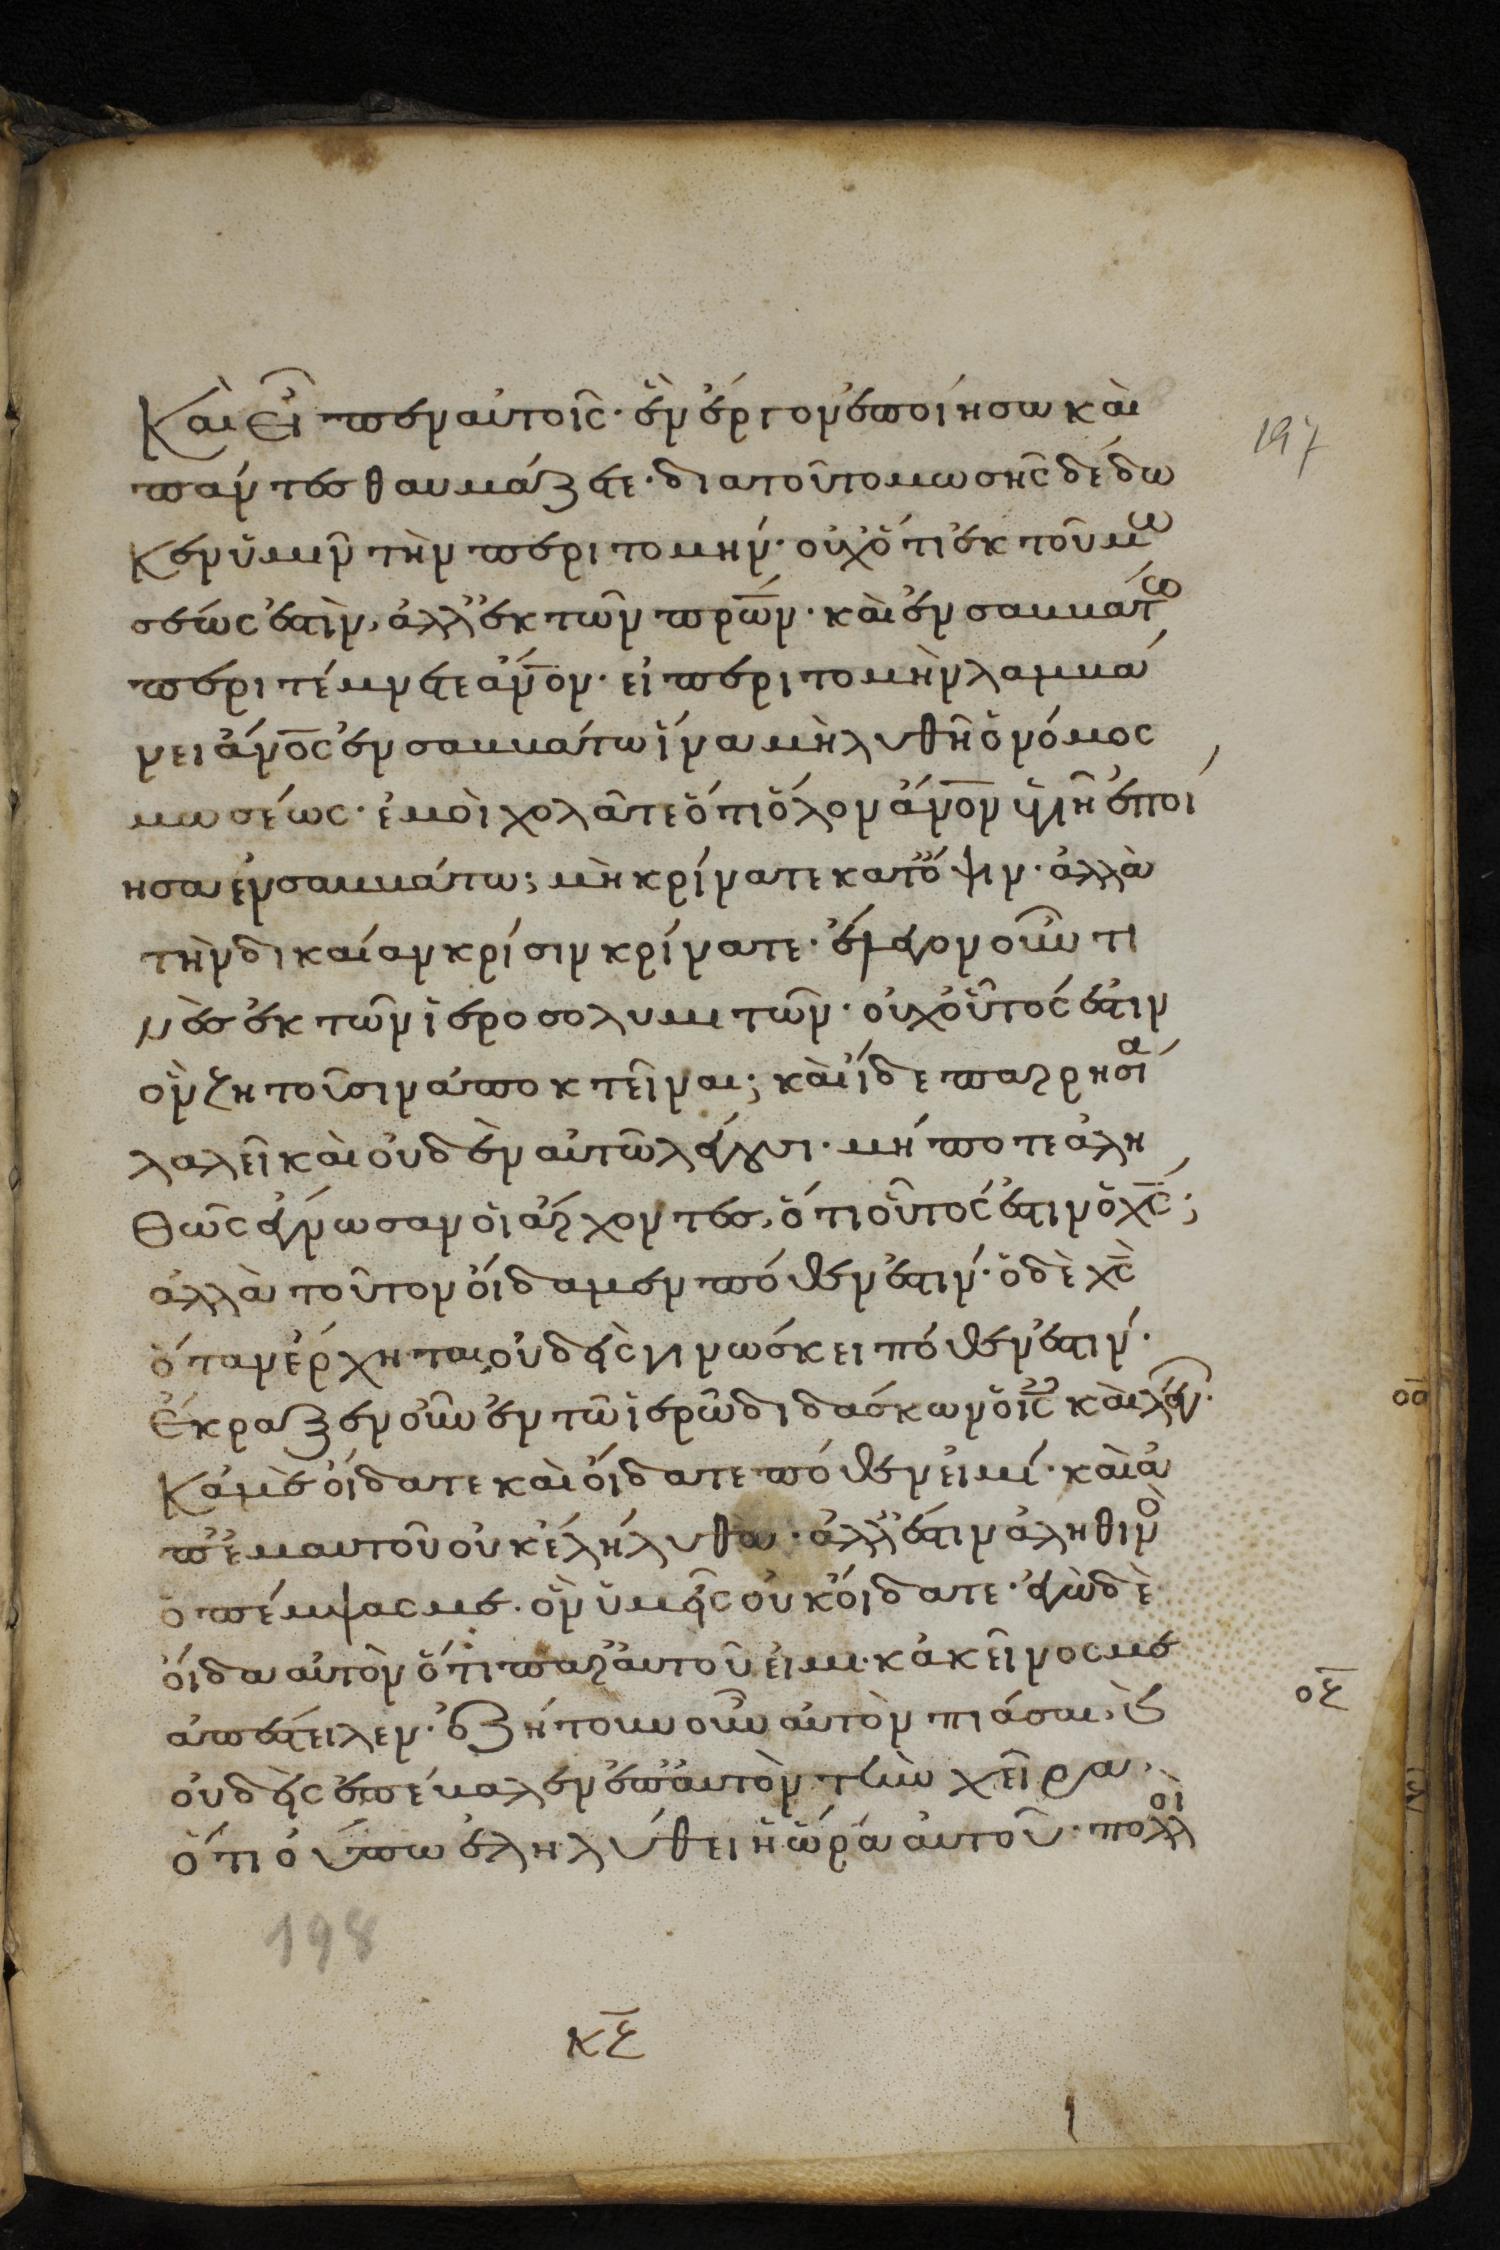 Καὶ εἶπεν αὐτοῖς· ἓν ἔργον ἐποίησα καὶ
πάντες θαυμάζετε· διατοῦτο μωσῆς δέδω
κεν ὑμῖν τὴν περιτομήν· οὐχ ὅτι ἐκ τοῦ μω
σέως ἐστὶν, ἀλλ' ἐκ τῶν πρ̅ων· καὶ ἐν σαββάτω
περιτέμνετε ἄν̅ον· εἰ περιτομὴν λαμβά
νει ἄν̅ος ἐν σαββάτω ἵνα μὴ λυθῆ ὁ νόμος
μωσέως· ἐμοὶ χολᾶτε ὅτι ὅλον ἄν̅ον ὑγιῆ ἐποί
ησα ἐν σαββάτω; μὴ κρίνατε κατ' ὄψιν· ἀλλὰ
τὴν δικαίαν κρίσιν κρίνατε· ἔλεγον οὖν τι
νὲς ἐκ τῶν ἱεροσολυμιτῶν· οὐχ οὗτός ἐστιν
ὃν ζητοῦσιν ἀποκτεῖναι; καὶ ἴδε παρρησία
λαλεῖ καὶ οὐδὲν αὐτῶ λέγει· μήποτε ἀλη
θῶς ἔγνωσαν οἱ ἄρχοντες, ὅτι οὗτός ἐστιν ὁ χ̅ς;
ἀλλὰ τοῦτον οἴδαμεν πόθεν ἐστίν· ὁ δὲ χ̅ς
ὅταν ἔρχηται, οὐδεὶς γινώσκει πόθεν ἐστίν·
Ἔκραξεν οὖν ἐν τῶ ἱερῶ διδάσκων ὁ ι̅ς καὶ λέγων·
Κἀμὲ οἴδατε καὶ οἴδατε πόθεν εἰμί· καὶ ἀ
π' ἐμαυτοῦ οὐκ ἐλήλυθα· ἀλλ' ἔστιν ἀληθινὸ
ὁ πέμψας με· ὃν ὑμεῖς οὐκ οἴδατε· ἐγὼ δὲ
οἶδα αὐτὸν ὅτι παρ' αὐτοῦ εἰμι· κἀκεῖνος με
ἀπέστειλεν· ἐζήτουν οὖν αὐτὸν πιάσαι, καὶ
οὐδεὶς ἐπέβαλεν ἐπ' αὐτὸν τὴν χεῖρα,
ὅτι οὔπω ἐληλύθει ἡ ὥρα αὐτοῦ· πολλοὶ
197
ο̅α
ο̅ε
198
κ̅ε